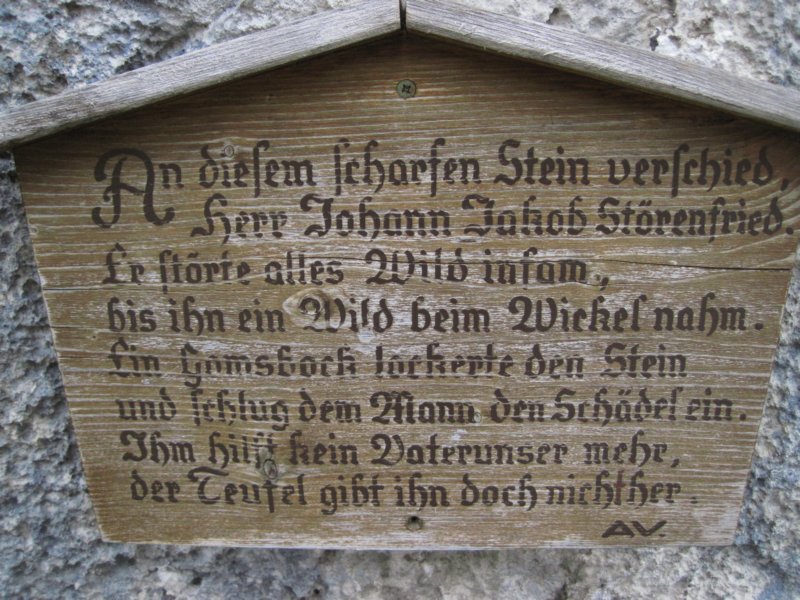 An diesem scharfen Stein verschied,
Herr Johann Jakob Störenfried.
Er störte alles Wild infam,
bis ihn ein Wild beim Wickel nahm.
Ein Gamsbock lockerte den Stein
und schlug dem Mann den Schädel ein.
Ihm hilft kein Vaterunser mehr,
der Teufel gibt ihn doch nicht her.
AV.